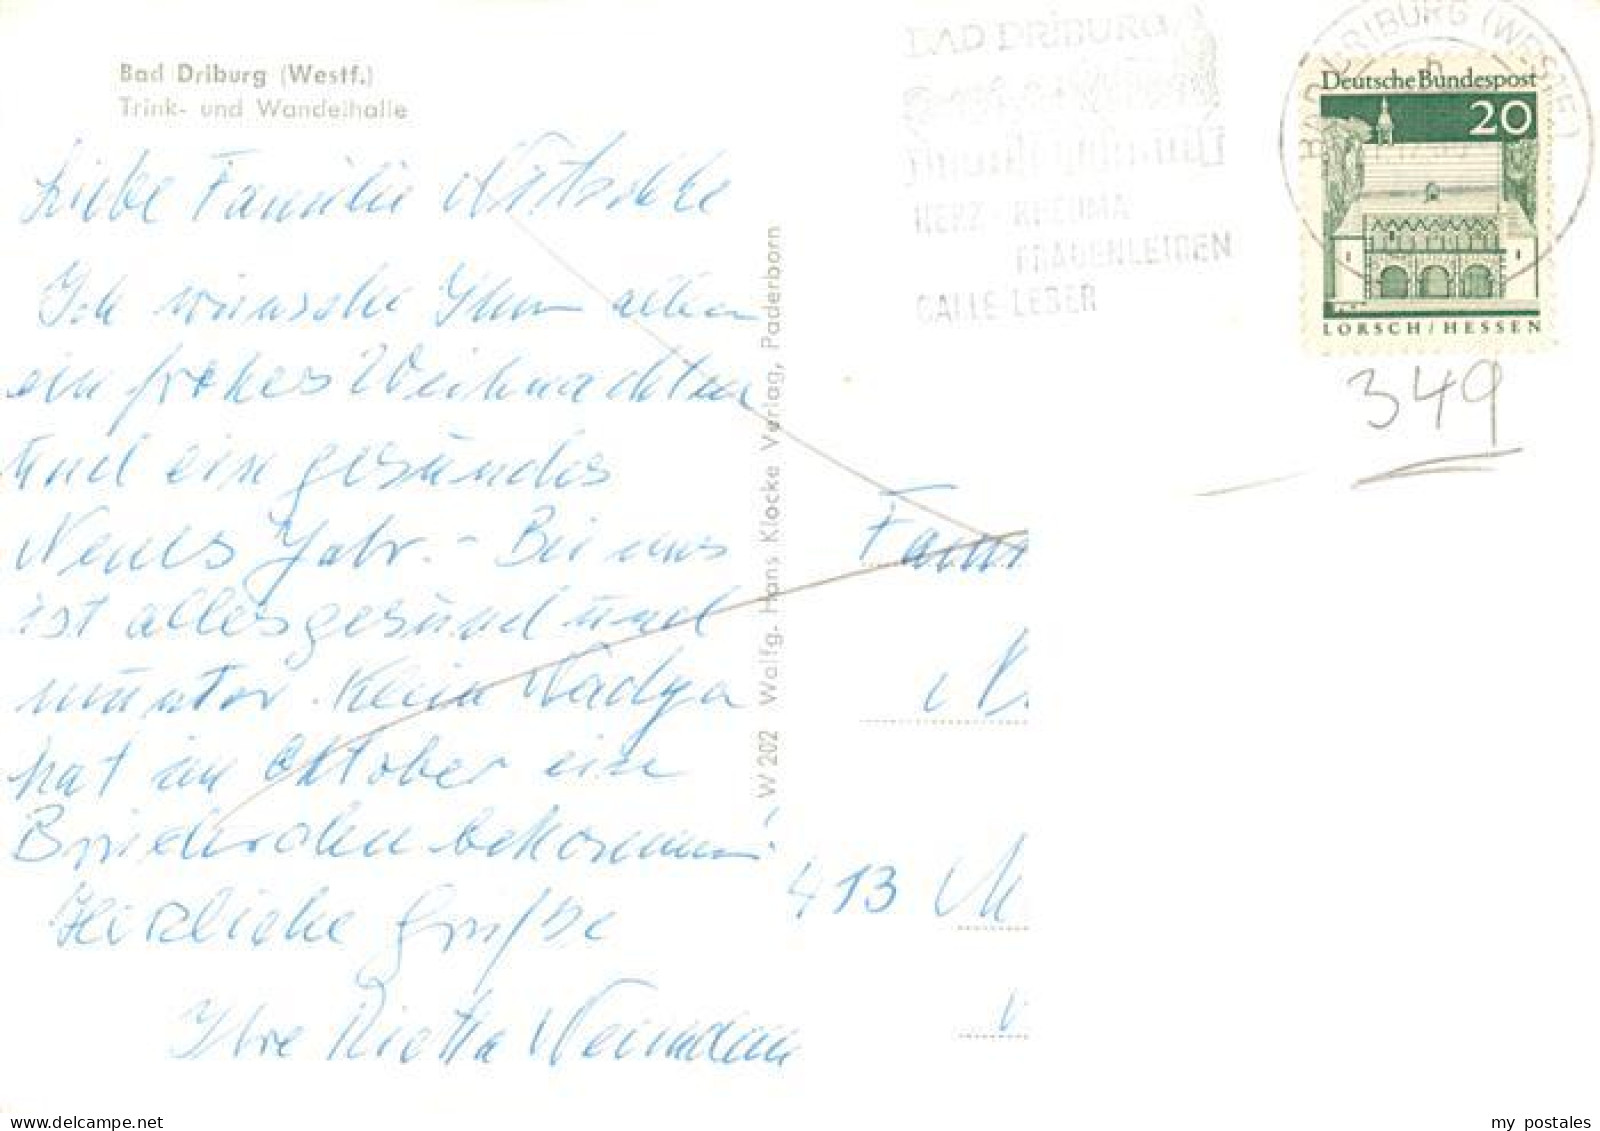 Bad Driburg (Westf.)
Trink- und Wandelhalle
Liebe Familie
Ich wünsche Ihnen allen
ein frohes Weihnachten
und ein gesundes
Neues Jahr. - Bei uns
ist alles gesund und
munter. Klein Nadja
hat im Oktober ein
Brüderchen bekommen!
Herzliche Grüße
Ihre Rietta Neumann
W 202 Wolfg. Hans Klocke Verlag, Paderborn
BAD DRIBURG
HERZ - RHEUMA
FRAUENLEIDEN
GALLE LEBER
BAD DRIBURG (WESTF)
Deutsche Bundespost
20
LORSCH/HESSEN
349
Fam
413 M
HippoStcard
my postales